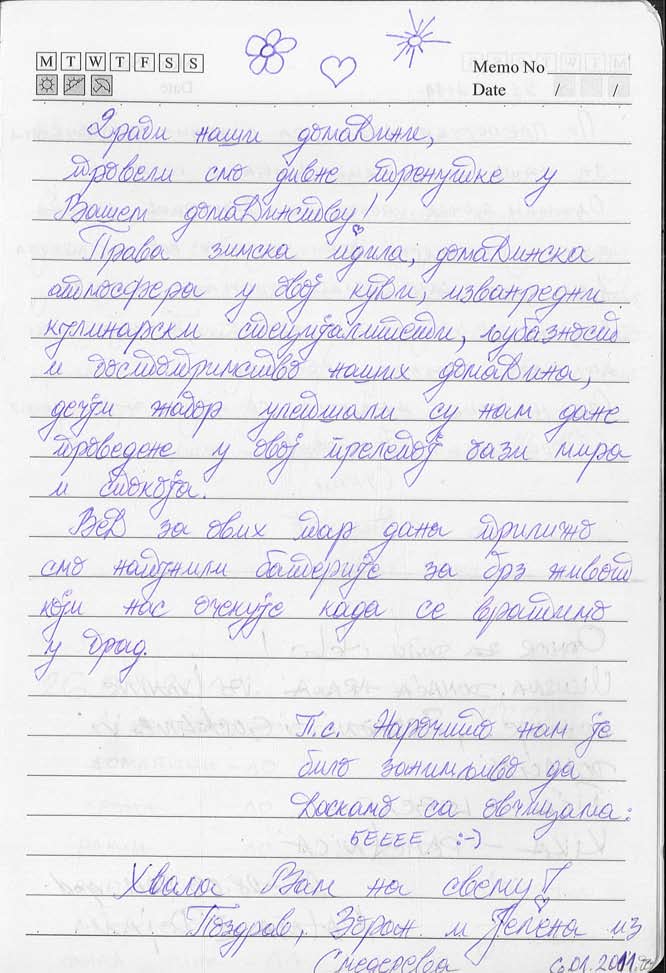 M T W T F S S
Memo No
Date / /
Драги наши домаћини,
провели смо дивне тренутке у
Вашем домаћинству!
Права зимска идила, домаћинска
атмосфера у овој кући, изванредни
кулинарски специјалитети, љубазност
и гостопримство наших домаћина,
дечји жабор улепшали су нам дане
проведене у овој прелепој оази мира
и спокоја.
Већ за ових пар дана прилично
смо напунили батерије за брз живот
који нас очекује када се вратимо
у град.
П.с. Нарочито нам је
било занимљиво да
ћаскамо са овчицама:
БЕЕЕЕ :-)
Хвала Вам на свему!
Поздрав, Зоран и Јелена из
Смедерева 01.2011.